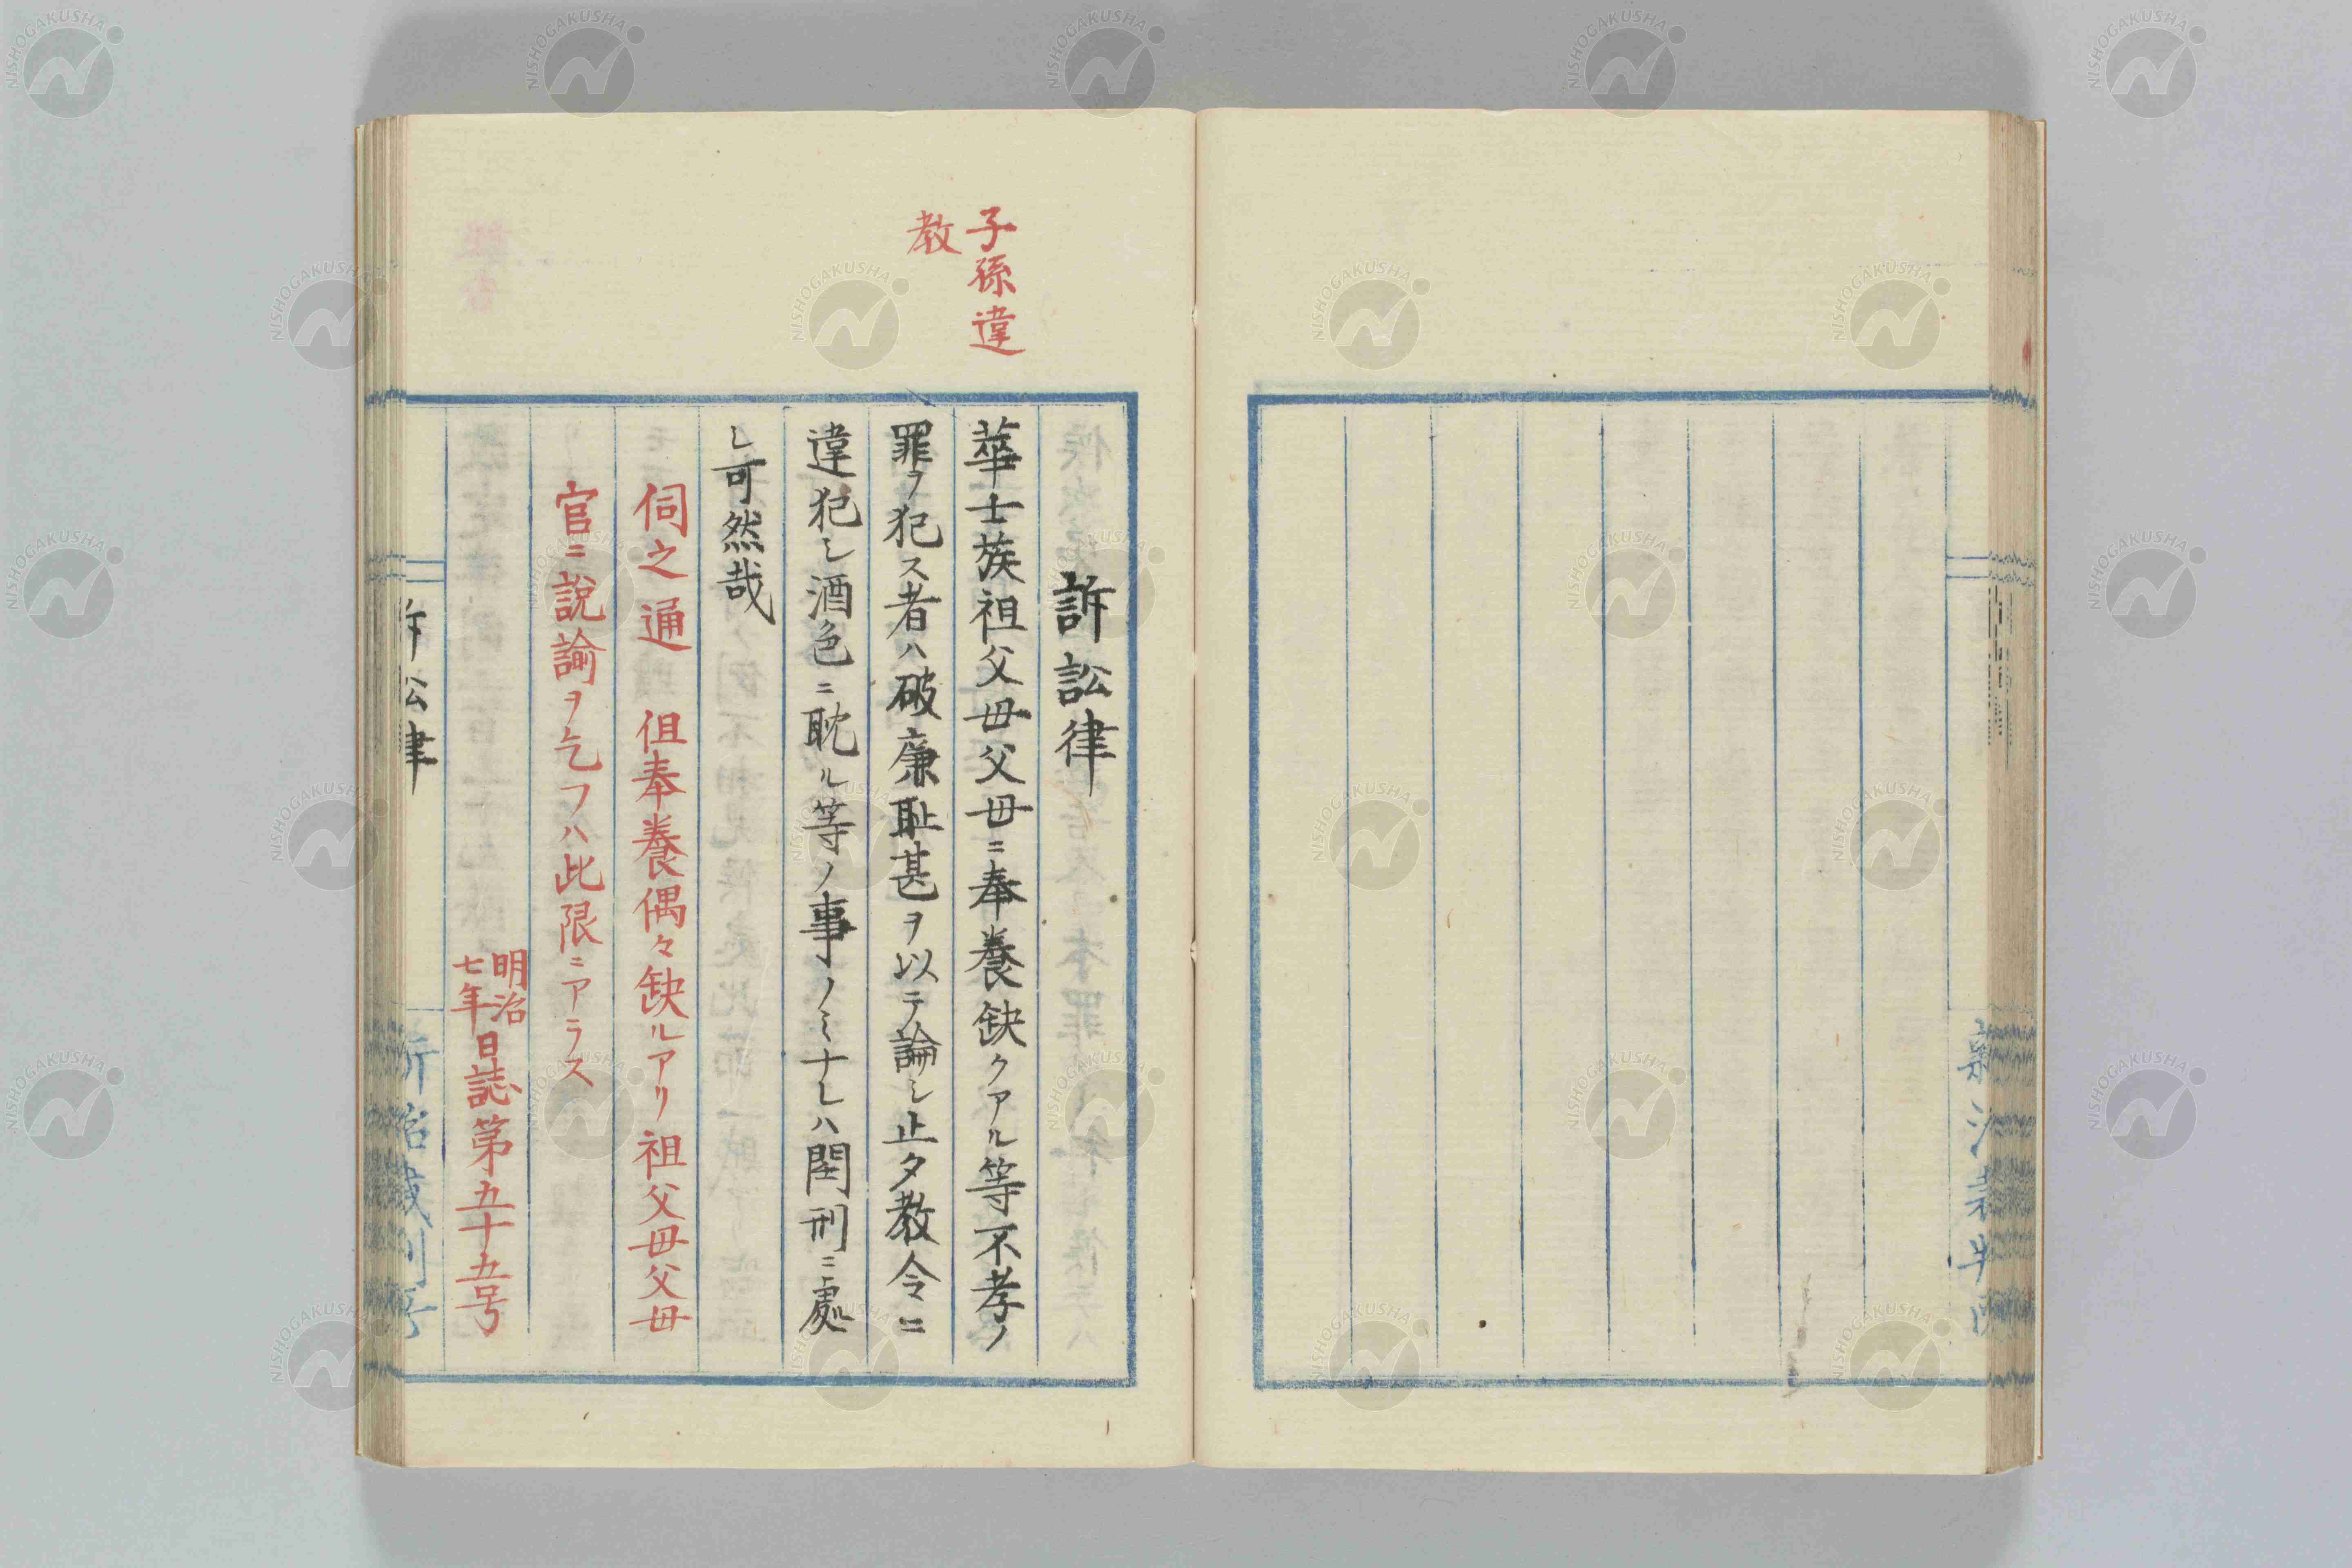 子孫違
教
訴訟律
華士族祖父母父母ニ奉養缺クアル等不孝ノ
罪ヲ犯ス者ハ破廉恥甚ヲ以テ論シ止タ教令ニ
違犯シ酒色ニ耽ル等ノ事ノミナレハ閏刑ニ處
シ可然哉
伺之通 但奉養偶々缺ルアリ祖父母父母
官ニ説諭ヲ乞フハ此限ニアラス
明治七年日誌第五十五号
訴訟律
NISHOGAKUSHA